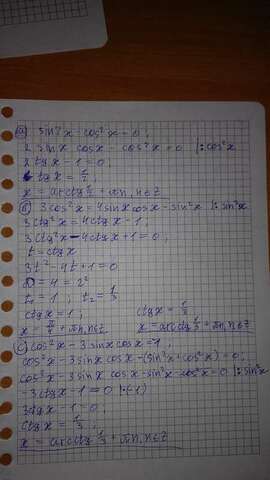 a) sin2x - cos²x = 0;
2 sinx cosx - cos²x = 0 |:cos²x
2 tgx - 1 = 0;
tgx = 1/2;
x = arctg 1/2 + πn, n∈Z
б) 3cos²x = 4sinx cosx - sin²x |:sin²x
3ctg²x = 4ctgx - 1;
3ctg²x - 4ctgx + 1 = 0;
t = ctgx
3t² - 4t + 1 = 0
D = 4 = 2²
t₁ = 1; t₂ = 1/3
ctgx = 1; ctgx = 1/3
x = π/4 + πn, n∈Z x = arcctg 1/3 + πn, n∈Z
c) cos²x - 3 sinx cosx = 1;
cos²x - 3 sinx cosx - (sin²x + cos²x) = 0;
cos²x - 3 sinx cosx - sin²x - cos²x = 0 |:sin²x
-3ctgx - 1 = 0 |·(-1)
3ctgx - 1 = 0;
ctgx = 1/3;
x = arcctg 1/3 + πn, n∈Z